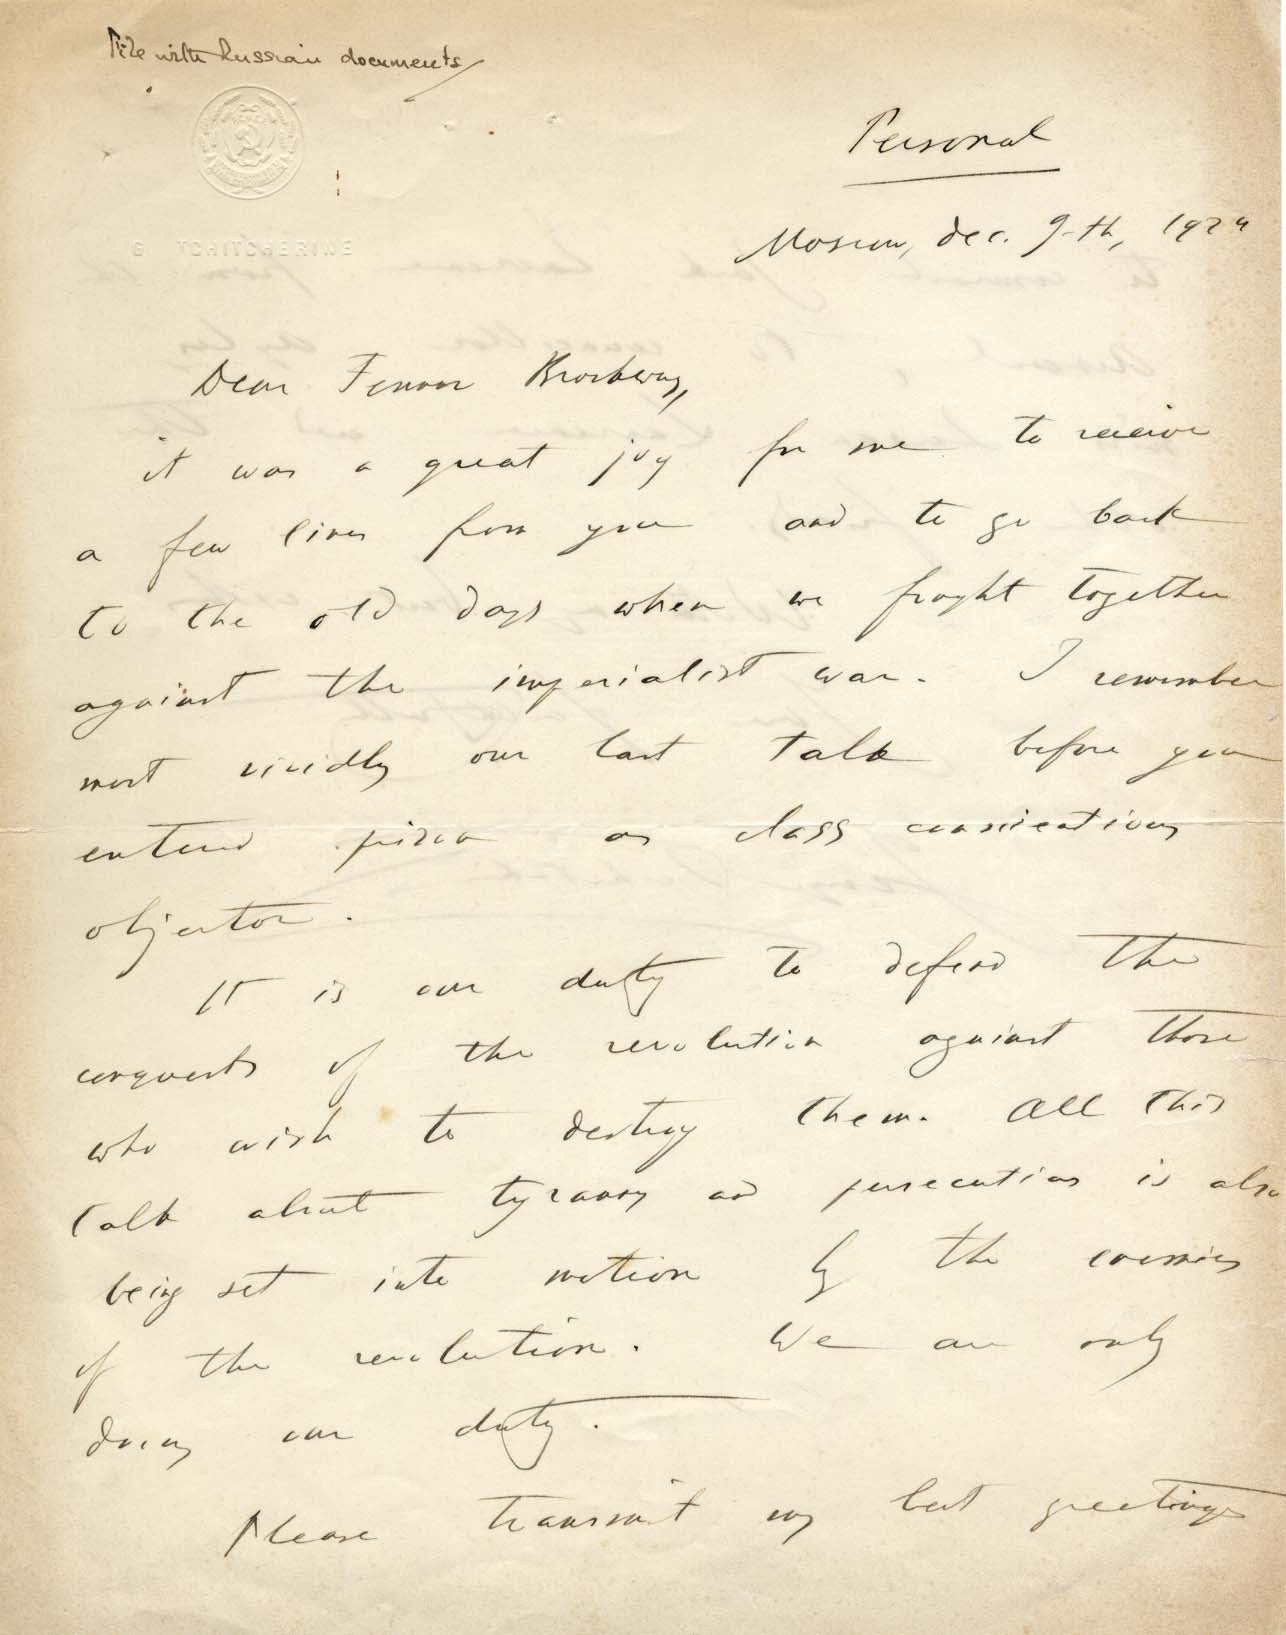 File with Russian documents
G TCHITCHERINE
Personal
Moscow, Dec. 9-th, 1924
Dear Fenner Brockway,
it was a great joy for me to receive
a few lines from you and to go back
to the old days when we fought together
against the imperialist war. I remember
most vividly our last talk before you
entered prison as class conscientious
objector.
It is our duty to defend the
conquests of the revolution against those
who wish to destroy them. All this
talk about tyranny and persecution is also
being set into motion by the enemies
of the revolution. We are only
doing our duty.
Please transmit my best greetings